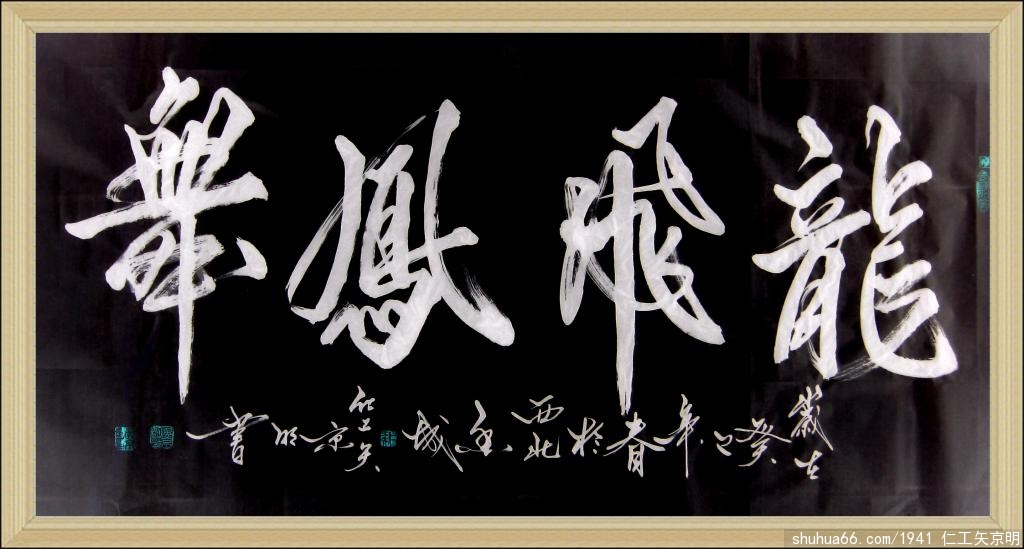 龍飛鳳舞
歲在癸巳年春於西北城仁工矢京明書
shuhua66.com/1941 仁工矢京明